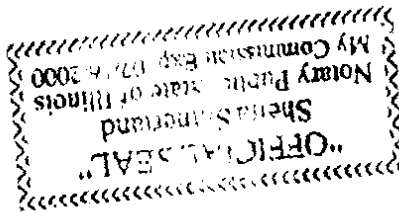 "OFFICIAL SEAL"
Sheila Sutherland
Notary Public, State of Illinois
My Commission Exp. 07/16/2000